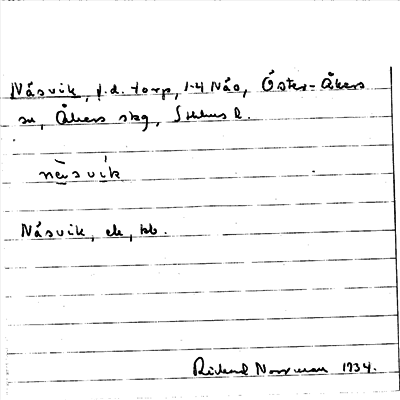 Näsvik, f.d. torp, 1-4 Näs, Öster-Åkers
sn, Åkers skg, Sthlms l.
nä̀svík
Näsvik, ek, kb.
Rickard Norrman 1934.